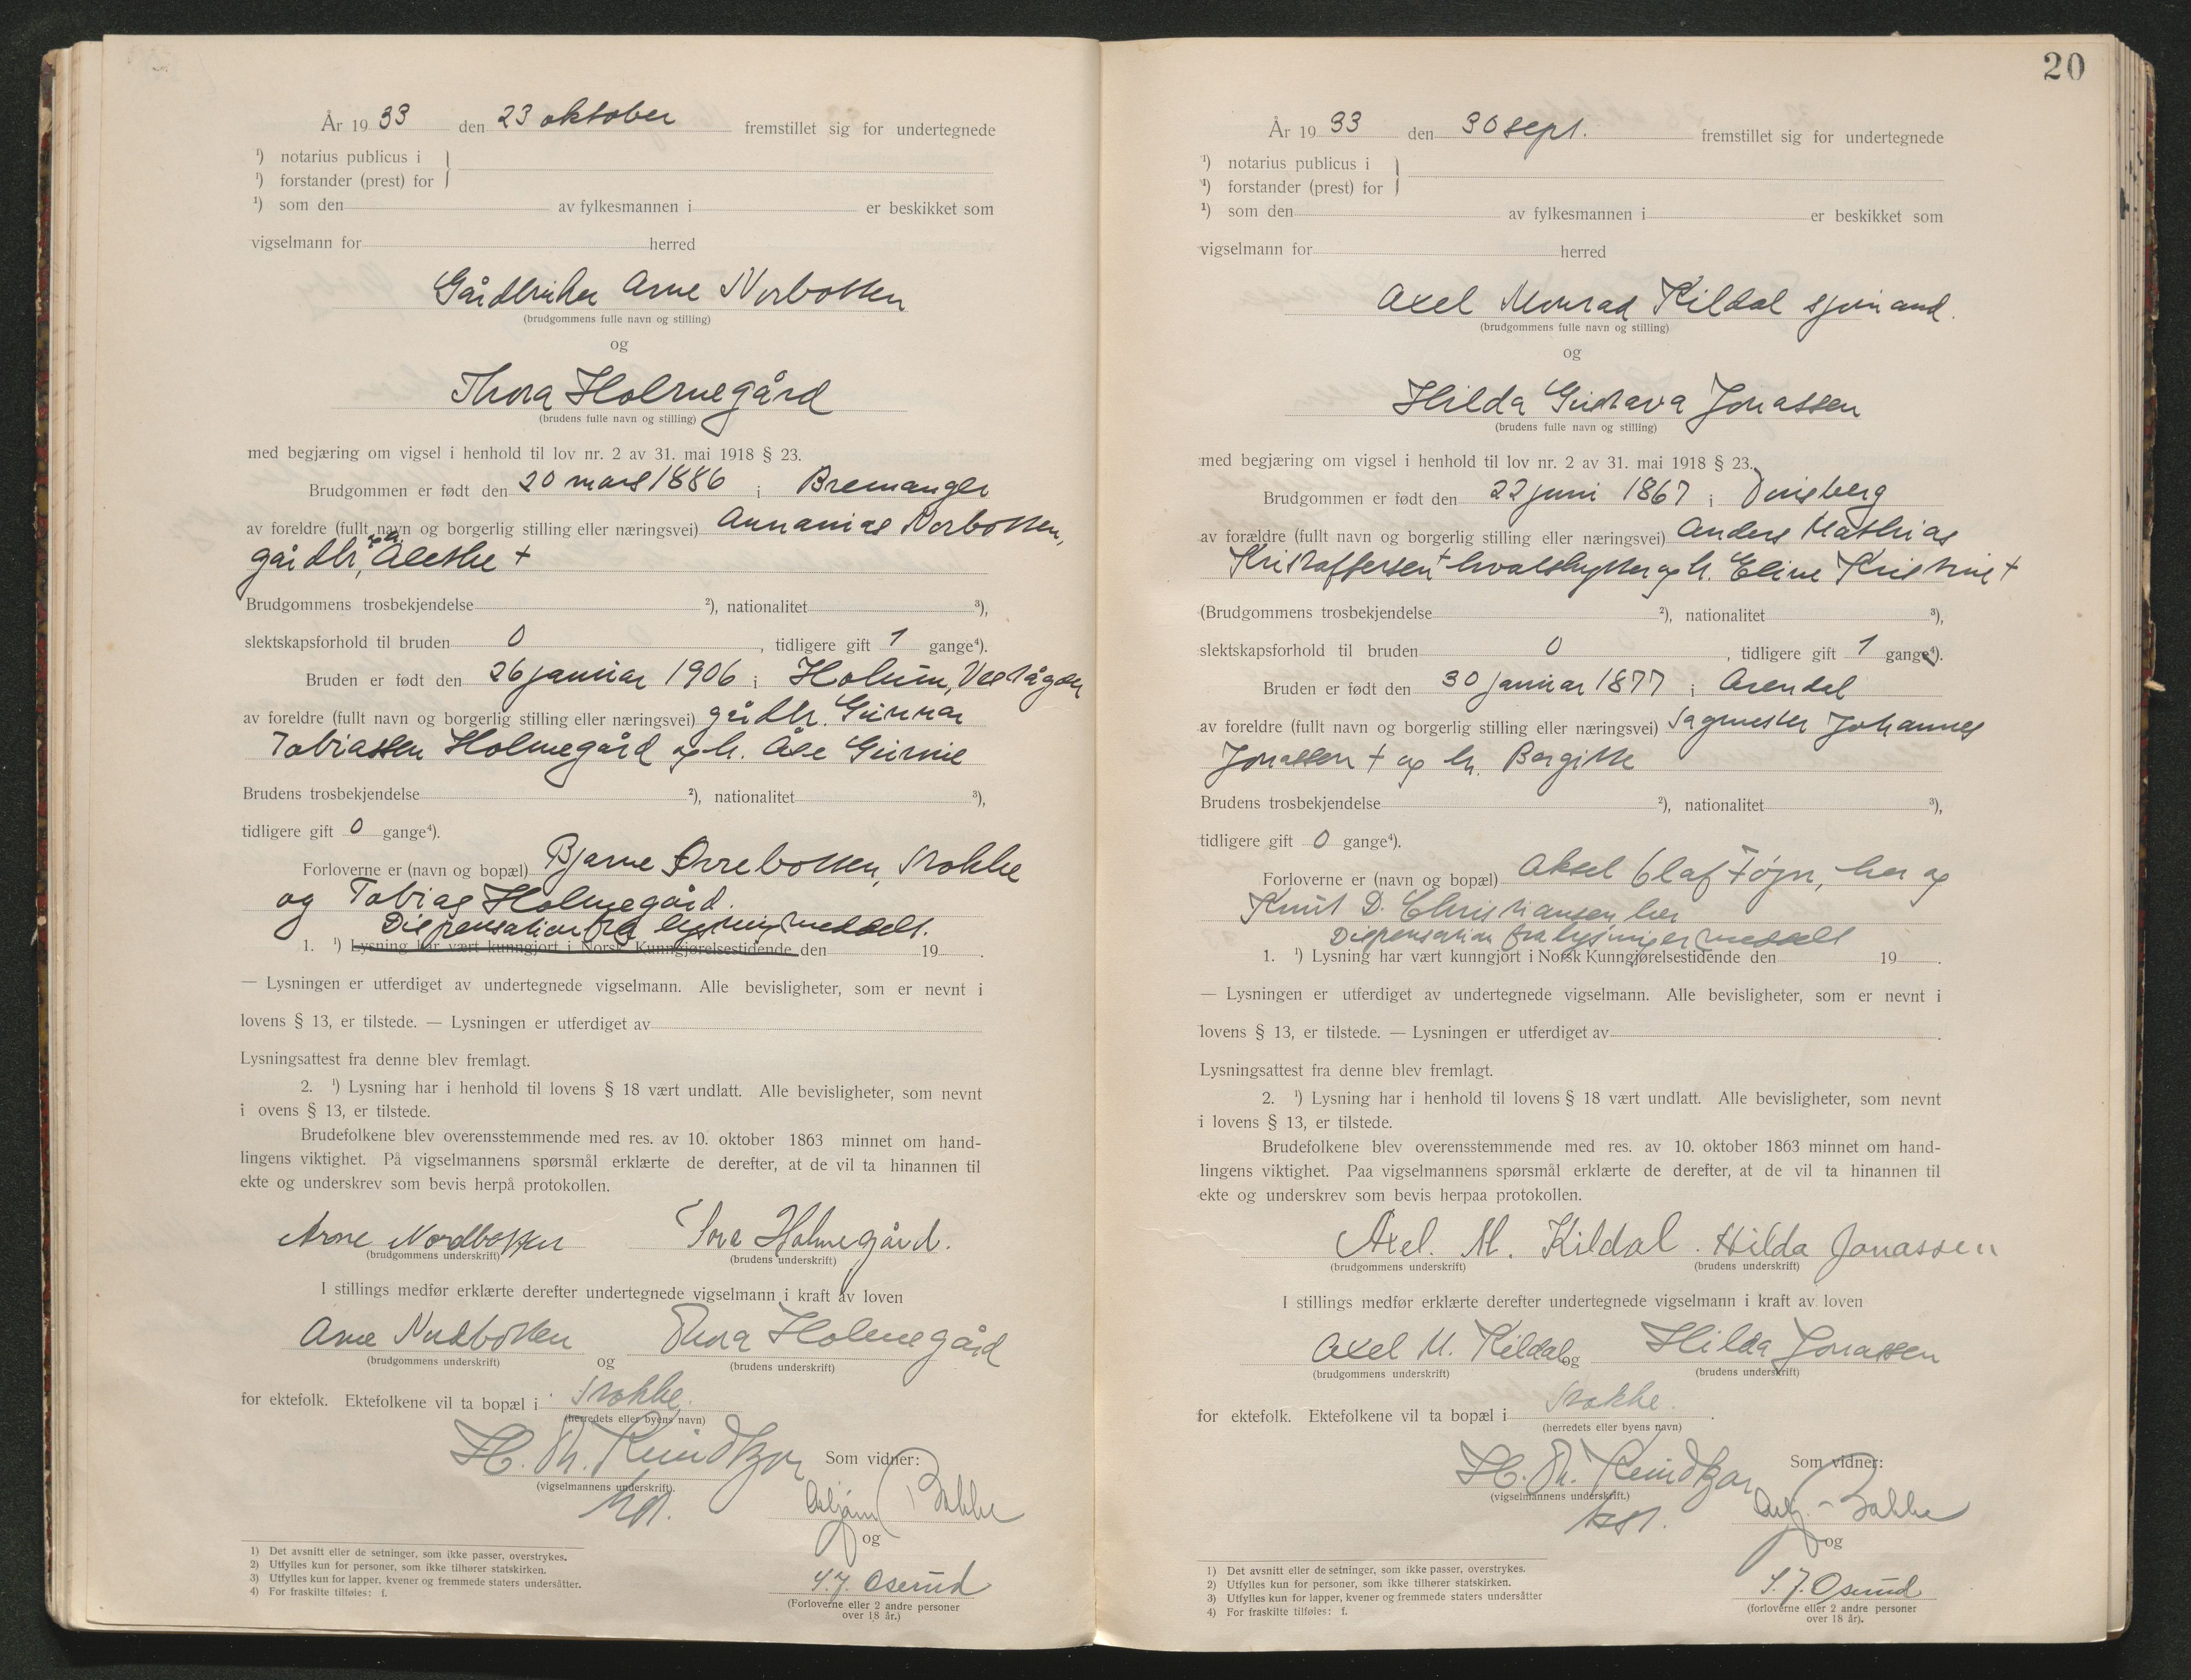 År 19 33 den 23 oktober fremstillet sig for undertegnede
¹) notarius publicus i
¹) forstander (prest) for
¹) som den av fylkesmannen i er beskikket som
vigselmann for herred
Gårdbruker Arne Norbotten
(brudgommens fulle navn og stilling)
og
Thora Holmegård
(brudens fulle navn og stilling)
med begjæring om vigsel i henhold til lov nr. 2 av 31. mai 1918 § 23.
Brudgommen er født den 20 mars 1886 i Bremanger
av foreldre (fullt navn og borgerlig stilling eller næringsvei) Annanias Norbotten,
gårdbr, og h. Alethe +
Brudgommens trosbekjendelse ²), nationalitet ³),
slektskapsforhold til bruden 0 , tidligere gift 1 gange⁴).
Bruden er født den 26 januar 1906 i Holum, Vest Agder
av foreldre (fullt navn og borgerlig stilling eller næringsvei) gårdbr. Gunnar
Tobiassen Holmegård og h. Åse Gurine
Brudens trosbekjendelse ²), nationalitet ³),
tidligere gift 0 gange⁴).
Forloverne er (navn og bopæl) Bjarne Orrebotten, Stokke
og Tobias Holmegård.
Dispensation fra lysning meddelt.
1. ¹) Lysning har vært kunngjort i Norsk Kunngjørelsestidende den 19 .
— Lysningen er utferdiget av undertegnede vigselmann. Alle bevisligheter, som er nevnt i
lovens § 13, er tilstede. — Lysningen er utferdiget av
Lysningsattest fra denne blev fremlagt.
2. ¹) Lysning har i henhold til lovens § 18 vært undlatt. Alle bevisligheter, som nevnt
i ovens § 13, er tilstede.
Brudefolkene blev overensstemmende med res. av 10. oktober 1863 minnet om hand-
lingens viktighet. På vigselmannens spørsmål erklærte de derefter, at de vil ta hinannen til
ekte og underskrev som bevis herpå protokollen.
Arne Nordbotten Tora Holmegård.
(brudgommens underskrift) (brudens underskrift)
I stillings medfør erklærte derefter undertegnede vigselmann i kraft av loven
Arne Nordbotten og Thora Holmegård
(brudgommens underskrift) (brudens underskrift)
for ektefolk. Ektefolkene vil ta bopæl i Stokke.
(herredets eller byens navn)
H. Th. Som vidner:
(vigselmannens underskrift).
Asbjørn Bakke
og
S. J. Oserud
(Forloverne eller 2 andre personer
over 18 år.)
1) Det avsnitt eller de setninger, som ikke passer, overstrykes.
2) Utfylles kun for personer, som ikke tilhører statskirken.
3) Utfylles kun for lapper, kvener og fremmede staters undersåtter.
4) For fraskilte tilføies: f.
20
År 19 33 den 30 sept. fremstillet sig for undertegnede
¹) notarius publicus i
¹) forstander (prest) for
¹) som den av fylkesmannen i er beskikket som
vigselmann for herred
Axel Monrad Kildal sjømand.
(brudgommens fulle navn og stilling)
og
Hilda Gustava Jonassen
(brudens fulle navn og stilling)
med begjæring om vigsel i henhold til lov nr. 2 av 31. mai 1918 § 23.
Brudgommen er født den 22 juni 1867 i Tønsberg
av forældre (fullt navn og borgerlig stilling eller næringsvei) Anders Mathias
Kristoffersen + hvalskytter og h. Eline Kristine +
(Brudgommens trosbekjendelse ²), nationalitet ³),
slektskapsforhold til bruden 0 , tidligere gift 1 gange⁴).
Bruden er født den 30 januar 1877 i Arendal
av foreldre (fullt navn og borgerlig stilling eller næringsvei) Sagmester Johannes
Jonassen + og h. Borgitte
Brudens trosbekjendelse ²), nationalitet ³),
tidligere gift 0 gange⁴).
Forloverne er (navn og bopæl) Aksel Olaf Føyn, her og
Knut D. Christiansen her
Dispensation fra lysning er meddelt
1. ¹) Lysning har vært kunngjort i Norsk Kunngjørelsestidende den 19 .
— Lysningen er utferdiget av undertegnede vigselmann. Alle bevisligheter, som er nevnt i
lovens § 13, er tilstede. — Lysningen er utferdiget av .
Lysningsattest fra denne blev fremlagt.
2. ¹) Lysning har i henhold til lovens § 18 vært undlatt. Alle bevisligheter, som nevnt
i lovens § 13, er tilstede.
Brudefolkene blev overensstemmende med res. av 10. oktober 1863 minnet om hand-
lingens viktighet. Paa vigselmannens spørsmål erklærte de derefter, at de vil ta hinannen til
ekte og underskrev som bevis herpaa protokollen.
Axel. M. Kildal. Hilda Jonassen
(brudgommens underskrift) (brudens underskrift)
I stillings medfør erklærte derefter undertegnede vigselmann i kraft av loven
Axel M. Kildal og Hilda Jonassen
(brudgommens underskrift) (brudens underskrift)
for ektefolk. Ektefolkene vil ta bopæl i Stokke.
(herredets eller byens navn)
H. Th. Som vidner:
(vigselmannens underskrift.)
Asbj. Bakke
og
S. J. Oserud
(forloverne eller 2 andre personer
over 18 år).
1) Det avsnitt eller de setninger, som ikke passer, overstrykes.
2) Utfylles kun for personer, som ikke tilhører statskirken.
3) Utfylles kun for lapper, kvener og fremmede staters undersåtter
4) For fraskilte tilføies: f.